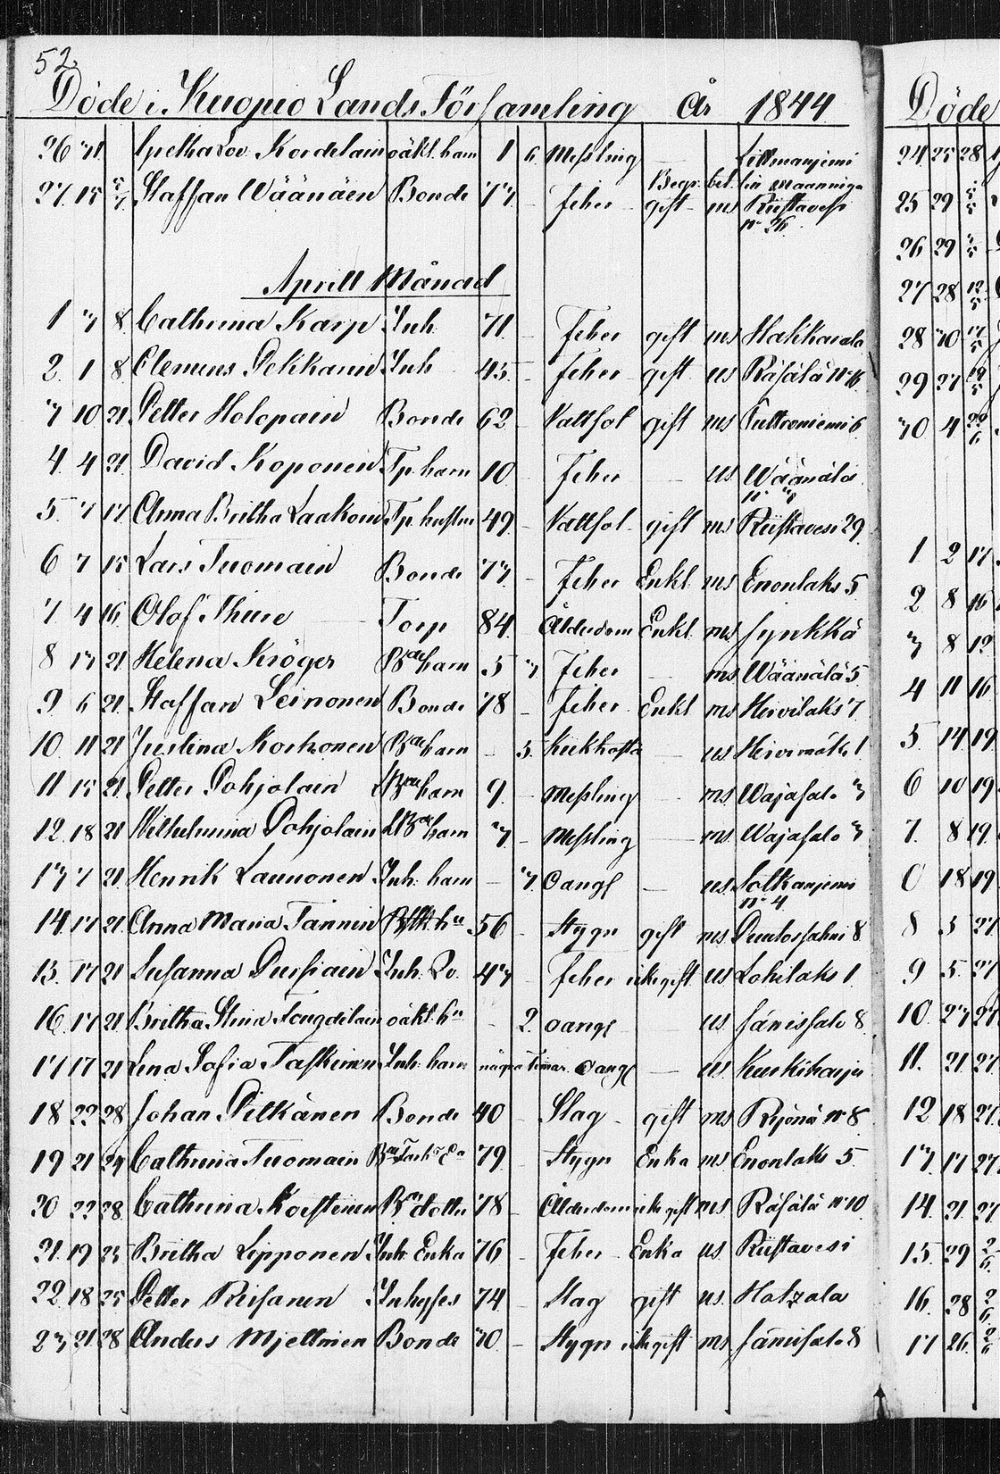 52.
Döde i Kuopio Lands Församling År 1844
26 31 Gretha Lov. Kordelain oäkt. barn 1 6 Messling
27 15 Staffan Wäänäen Bonde 73 - feber gift ms Riistavesi
N° 26
Aprill Månad
1 3 8 Cathrina Karp Inh. 71 - Feber gift ms Hakkarala
2. 1 8 Clemens Pekkarin Inh 45 - feber gift us Räsälä N° 16
3 10 21 Petter Holopain Bonde 62 - Vattsot gift ms 6
4. 4 21 David Koponen Tp. barn 10 - Feber - us Wäänälä
N° 3
5. 7 17 Anna Britha Laakoin Tp. hustru 49 - Vattsot gift ms Riistavesi 29
6 7 15 Lars Tuomain Bonde 73 - Feber Enkl ms Enonlaks 5
7 4 16 Olof Thure Torp 84. Ålderdom Enkl ms Jynkkä
8 13 21 Helena Kröger Bde barn 5 3 Feber ms Wäänälä 5
9. 6 21 Staffan Leinonen Bonde 78 - Feber Enkl ms Hirvilaks 7
10 11 21 Justina Korhonen Bde barn - 5. Kikhosta us Hirvimäk. 1
11 15 21 Petter Pohjolain barn 9. - Messling - ms Wajasalo 3
12 18 21 Wilhelmina Pohjolain barn 3 - Messling - ms Wajasalo 3
13 7 21 Henrik Launonen Inh. barn - 3. oangf - us
N° 4
14 17 21 Anna Maria Tannin 56 - Stygn gift ms 8
15. 17 21 Susanna Pursiain Inh. 43 - feber icke gift us Lohilaks 1
16. 17 21 Britha Stina oäkt. bn - 2. oangf us Jänissalo 8.
17 17 21 Lena Sofia Taskinen Inh. barn några timar. oangf - us. Kurkiharju
18 22 28 Johan Pitkänen Bonde 40 - Slag - gift ms N° 8
19 21 24 Cathrina Tuomain 79 - Stygn Enka ms Enonlaks 5.
20 22 28 Cathrina Korhonen Bde dotter 78 - Ålderdom icke gift ms Räsälä N° 10
21. 19 25 Britha Lipponen Inh Enka 76 - Feber Enka us Riistavesi
22. 18 25 Petter Riisanen Inhyses 74 - Slag gift us. Hatzala
23 21 28 Anders Mjettinen Bonde 30 - Stygn icke gift ms Jänissalo 8
Döde
24 25 28
25 29
26 29
27 28
28 30
29 27
30 4
1 2 17
2 8 16
3 8 19
4 11 16
5 14 19
6 10 19
7. 8 19
0 18 19
8 5 27
9 5. 27
10. 23 27
11. 21 27
12 18 27
13. 17 27
14 21 27
15 29
16. 28
17 26.